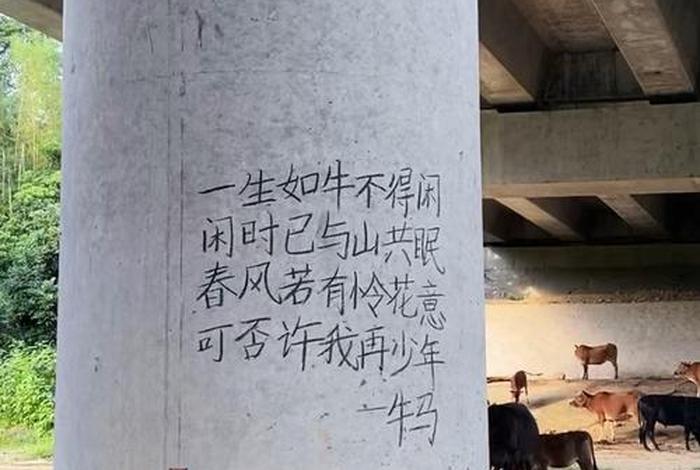 一生如牛不得闲
闲时已与山共眠
春风若有怜花意
可否许我再少年
一牛马